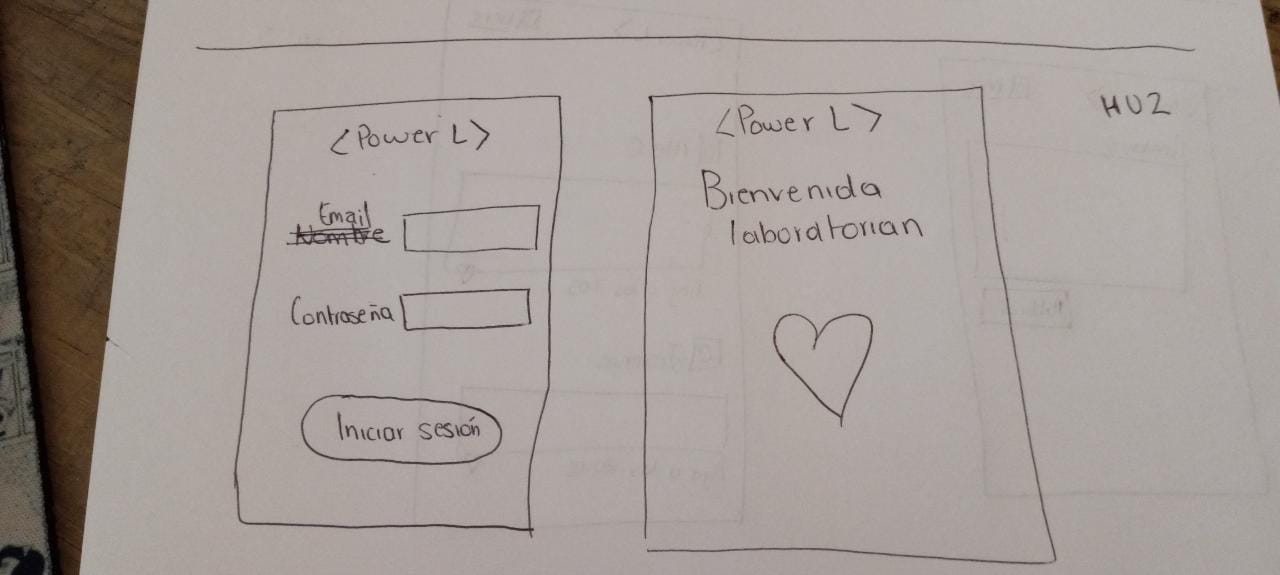 <Power L>
Email
Nombre
Contraseña
Iniciar sesión
<Power L>
Bienvenida
laboratorian
HU2